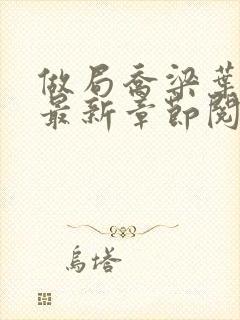 做局乔梁葉
最新章節閱
烏塔